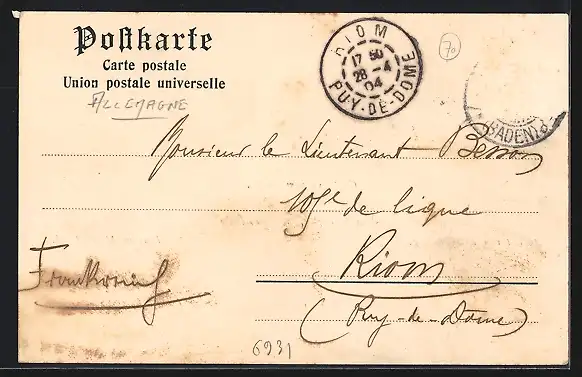 Postkarte
Carte postale
Union postale universelle
ALLEMAGNE
RIOM
17 50
28 - 4
04
PUY-DE-DOME
70
(BADEN)
Monsieur le Lieutenant Besson
105e de ligne
Riom
(Puy-de-Dôme)
Frankreich
6931